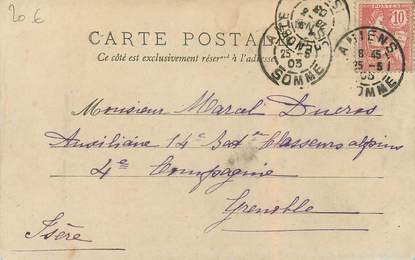 20 €
CARTE POSTALE
Ce côté est exclusivement réservé à l'adresse
AMIENS
8 45
25 -5
03
SOMME
25 -5
03
SOMME
10
Monsieur Marcel Ducros
Auxiliaire 14e Bat on Chasseurs alpins
4e Compagnie
Grenoble
Isère